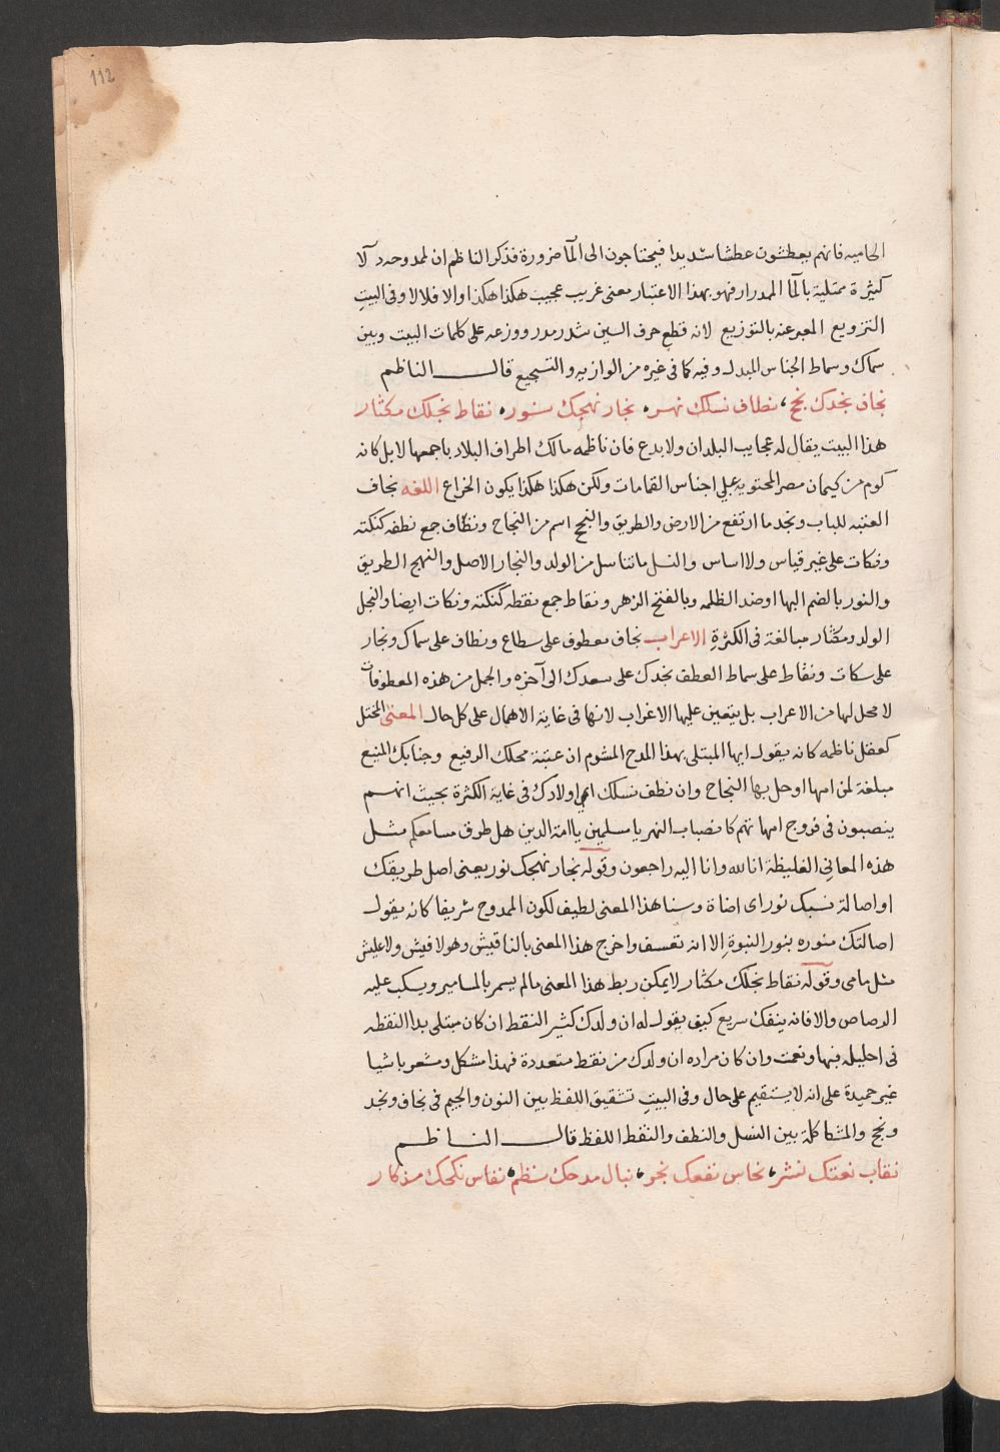 112
الحاميه فانهم يعطشون عطشا شديدا فيحتاجون الى المآ ضرورة فذكر الناظم ان لممدوحه دلآ
كثيرة ممتلية بالمآ المدرار فهو بهذا الاعتبار معنى غريب عجيب هكذا هكذا والا فلا لا وفى البيت
التزويع المعبر عنه بالتوزيع لانه قطع حرف السين سدر مدر ووزعه على كلمات البيت وبين
سماك وسماط الجناس المبدل وفيه كما فى غيره من الوازيه والتسجيع قال الناظم
نجاف نجدك نجح، نطاف نسلك نهر، نجار نهجك نور، نقاط نجلك مكثار
هذا البيت يقال له عجايب البلدان ولا بدع فان ناظمه مالك اطراف البلاد باجمعها لا بل كانه
كوم من كيمان مصر المحتويه على اجناس القمامات ولكن هكذا هكذا يكون الخراع اللغه نجاف
العتبه للباب ونجد ما ارتفع من الارض والطريق والنجح اسم من النجاح ونطاف جمع نطفه كنكته
ونكات على غير قياس ولا اساس والنسل ما تناسل من الولد والنجار الاصل والنهج الطريق
والنور بالضم البها او ضد الظلمه وبالفتح الزهر ونقاط جمع نقطه كنكته ونكات ايضا والنجل
الولد ومكثار مبالغة فى الكثرة الاعراب نجاف معطوف على سطاع ونطاف على سماك ونجار
على سكات ونقاط على سماط العطف نجدك على سعدك الى آخره والجمل من هذه المعطوفات
لا محل لها من الاعراب بل يتعين عليها الاغراب لانها فى غاية الاهمال على كل حال المعنى المختل
كعقل ناظمه كانه يقول ايها المبتلى بهذا المدح المشوم ان عتبة محلك الرفيع وجنابك المنيع
مبلغة لمن امها او حل بها النجاح وان نطف نسلك اى اولادك فى غاية الكثرة بحيث انهم
ينصبون فى فروج امهاتهم كانصباب النهر يا مسلمين يا امة الدين هل طرق مسامعكم مثل
هذه المعانى الغليظة انا لله وانا اليه راجعون وقوله نجار نهجك نور يعنى اصل طريقك
او اصالة نسبك نور اى اضاة وسنا هذا المعنى لطيف لكون الممدوح شريفا كانه يقول
اصالتك منوره بنور النبوة الا انه تعسف واخرج هذا المعنى بالناقيش وهو لا فيش ولا عليش
مثل مامى وقوله نقاط نجلك مكثار لا يمكن ربط هذا المعنى ما لم يسمر بالمسامير ويسكب عليه
الرصاص والا فانه ينفك سريع كيف يقول له ان ولدك كثير النقط ان كان مبتلى بدا النقطه
فى احليله فبها ونعمت وان كان مراده ان ولدك من نقط متعددة فهذا مشكل ومشعر باشيا
غير حميدة على انه لا يستقيم على حال وفى البيت تشقيق اللفظ بين النون والجيم فى نجاف ونجد
ونجح والمشاكلة بين النسل والنطف والنقط اللفظ قال الناظم
نقاب نعتك نشر، نحاس نفعك نجر، نبال مدحك نظم، نفاس نكحك مذكار